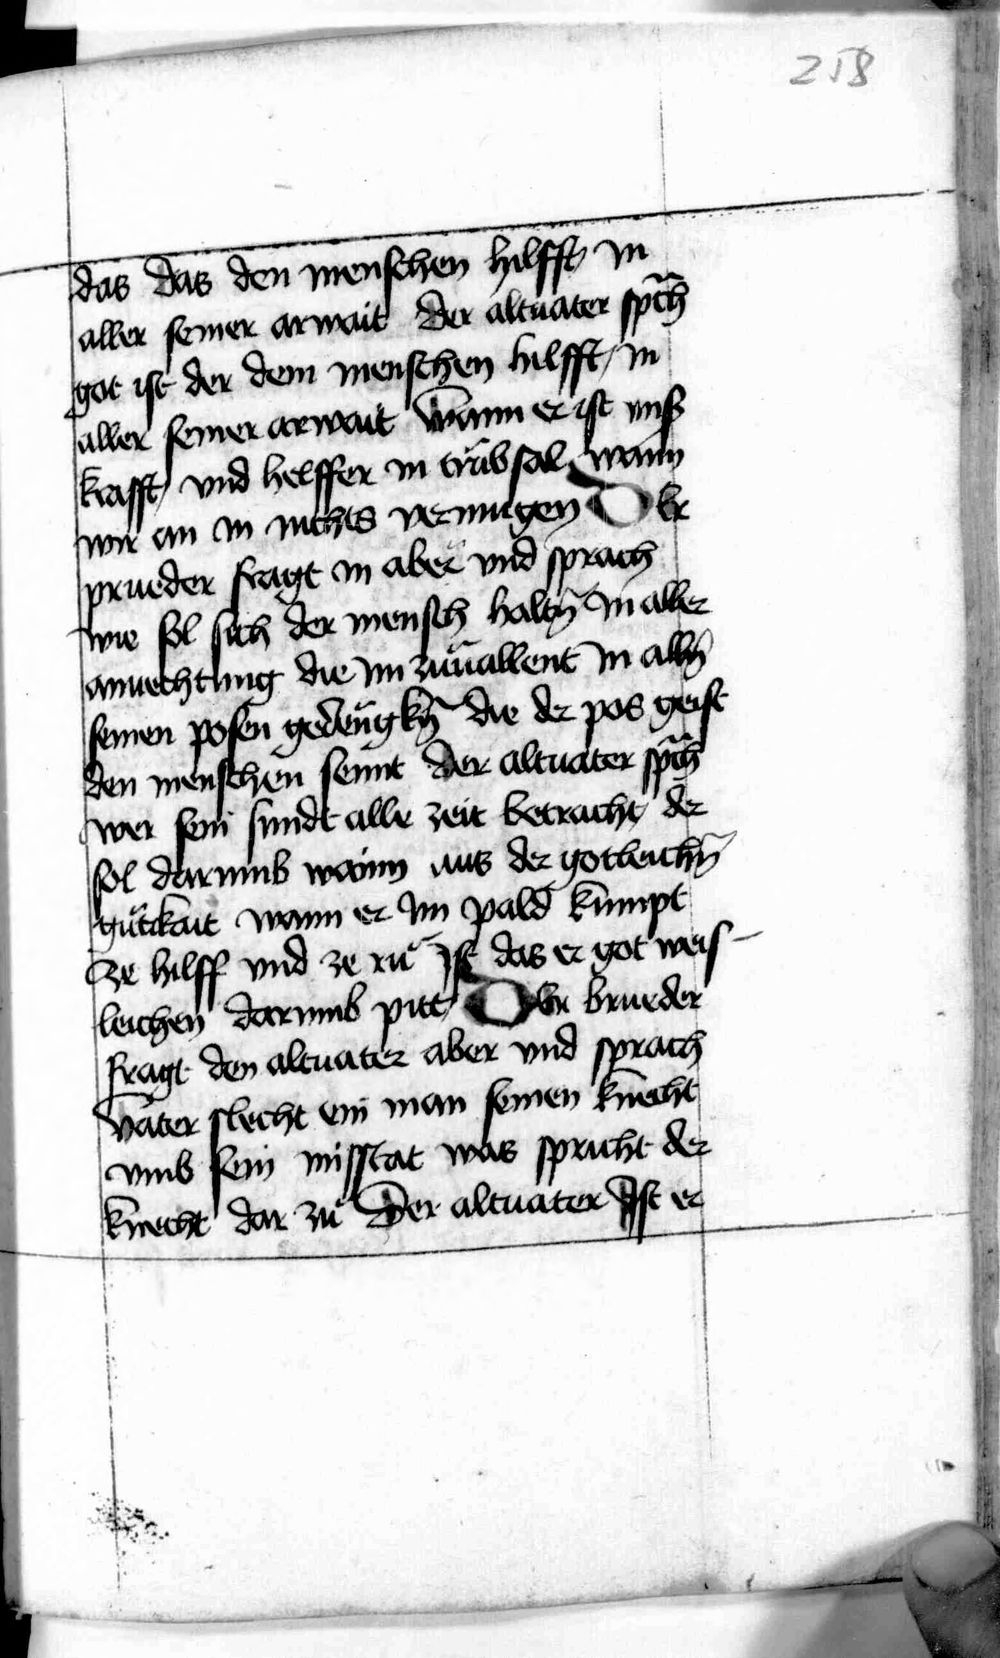 258
das das den menschen hilfft in
aller seiner arwait Der altuater spch̄
got ist der dem menschen hilfft / in
aller seiner arwait Wann er ist vnß
krafft / vnd helffer in trůbsal wann
wir an in nichts vermugen Der
prueder fragt in aber vnd sprach
wie sol sich der mensch haltn̄ in aller
anuechtung die im zuͤuallent in alln̄
seinen posen gedengkn̄ die der pos geist
den menschen sennt Der altuater spch̄
wer sein sundt alle zeit betracht / der
sol darumb wainn aus der gotleichn̄
guͤtikait wann er im pald kumpt
ze hilff vnd ze ruͤ Ist das er got weis-
leichen darumb pitt / Der brueder
fragt den altuater aber vnd sprach
vater slecht ein man seinen knecht
vmb sein misstat was spricht der
knecht dar zuͤ Der altuater Ist er